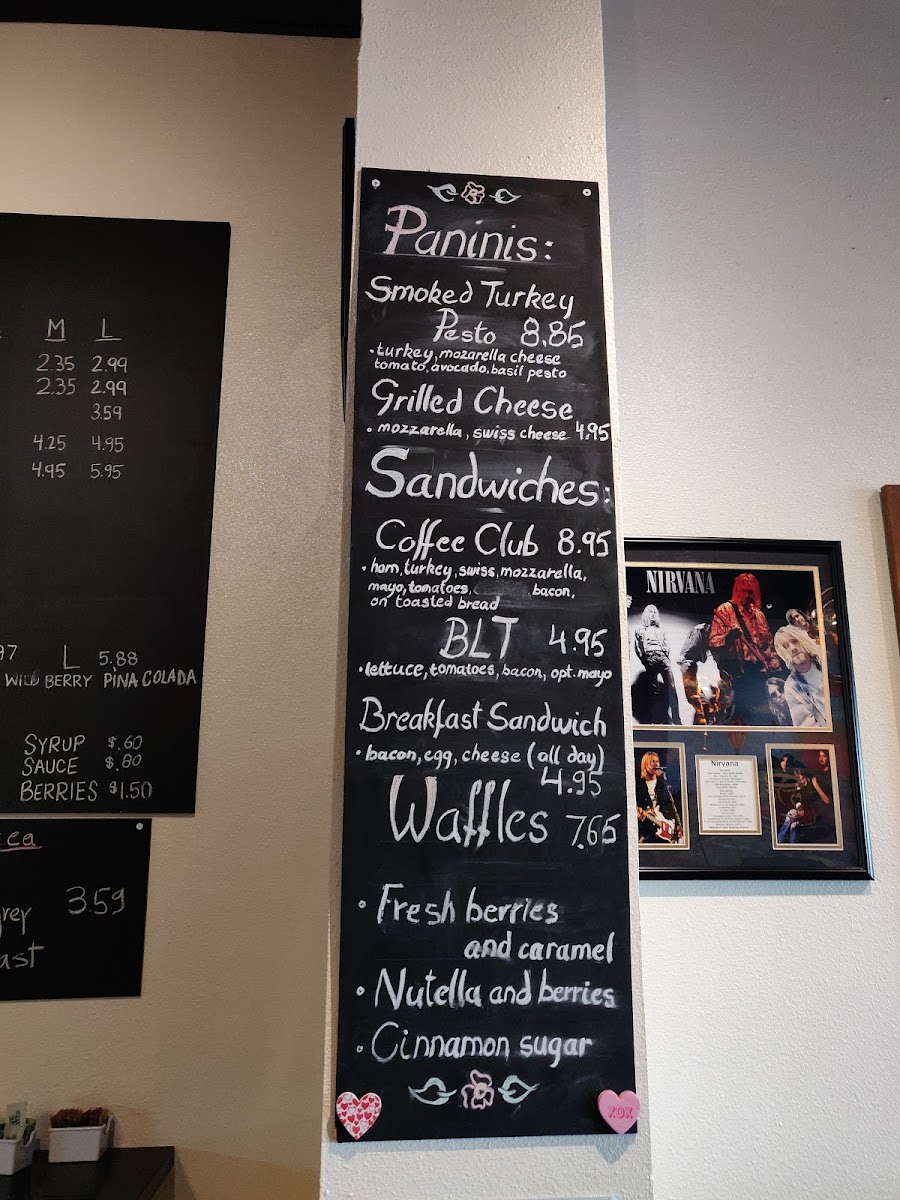 M L
2.35 2.99
2.35 2.99
3.59
4.25 4.95
4.95 5.95
L 5.88
WILD BERRY PINA COLADA
SYRUP $.60
SAUCE $.80
BERRIES $1.50
3.59
Paninis:
Smoked Turkey
Pesto 8.85
• turkey, mozarella cheese
tomato, avocado, basil pesto
Grilled Cheese
• mozzarella, swiss cheese 4.95
Sandwiches:
Coffee Club 8.95
• ham, turkey, swiss, mozzarella,
mayo, tomatoes, bacon,
on toasted bread
BLT 4.95
• lettuce, tomatoes, bacon, opt. mayo
Breakfast Sandwich
• bacon, egg, cheese (all day)
4.95
Waffles 7.65
• Fresh berries
and caramel
• Nutella and berries
• Cinnamon sugar
XOX
NIRVANA
Nirvana